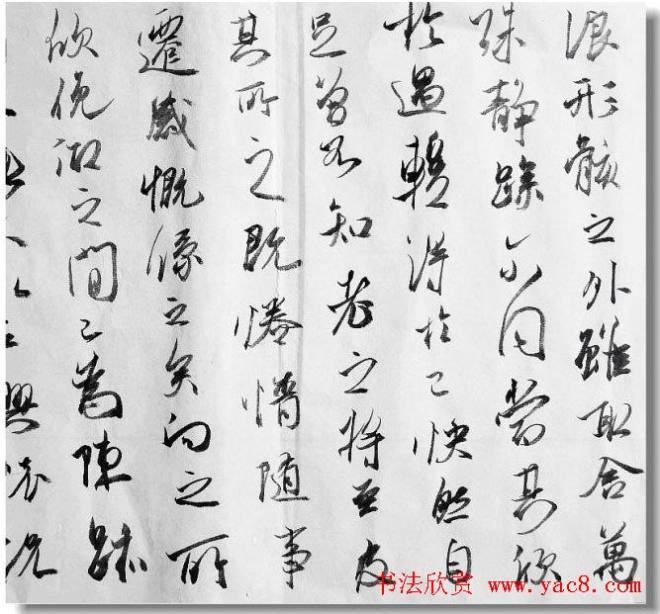 浪形骸之外雖取舍萬
殊静躁不同當其欣
於遇暫得於己快然自
足曾不知老之將至及
其所之既惓情隨事
遷感慨係之矣向之所
欣俛仰之間已為陳跡
興懷況
书法欣赏 www.yac8.com